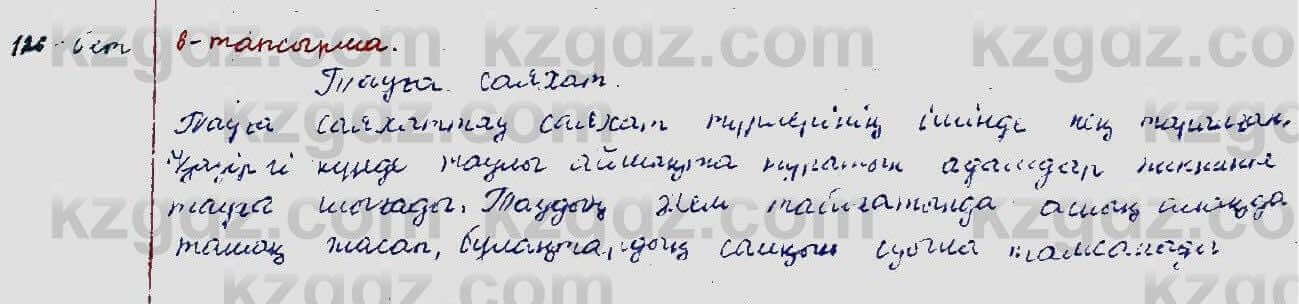 126-бет 6-тапсырма.
Тауға саяхат.
Тауға саяхаттау саяхат түрлерінің ішінде кең таралған.
Қазіргі күнде таулы аймақта тұратын адамдар пикникке
тауға шығады. Таудың әсем табиғатында ашық аспанда
тамақ жасап, бұлақтардың салқын суына тамсанады